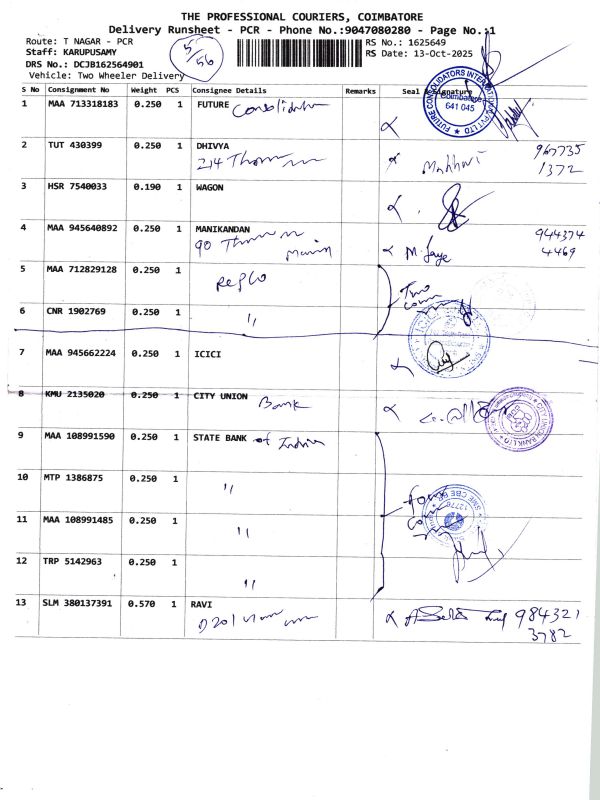 THE PROFESSIONAL COURIERS, COIMBATORE
Delivery Runsheet - PCR - Phone No.:9047080280 - Page No.:1
Route: T NAGAR - PCR
RS No.: 1625649
Staff: KARUPUSAMY
RS Date: 13-Oct-2025
DRS No.: DCJB162564901
Vehicle: Two Wheeler Delivery
55/56
S No Consignment No Weight PCS Consignee Details Remarks Seal & Signature
1 MAA 713318183 0.250 1 FUTURE Consolidator
FUTURE CONSOLIDATORS INTERNATIONAL PVT LTD
Coimbatore
641 045
2 TUT 430399 0.250 1 DHIVYA
214
967735
1372
3 HSR 7540033 0.190 1 WAGON
4 MAA 945640892 0.250 1 MANIKANDAN
90
944374
4469
5 MAA 712829128 0.250 1 Repco
Two
6 CNR 1902769 0.250 1 "
7 MAA 945662224 0.250 1 ICICI
8 KMU 2135020 0.250 1 CITY UNION Bank
CITY UNION BANK LTD
9 MAA 108991590 0.250 1 STATE BANK of India
10 MTP 1386875 0.250 1 "
four
11 MAA 108991485 0.250 1 "
12 TRP 5142963 0.250 1 "
13 SLM 380137391 0.570 1 RAVI
D201
984321
3782